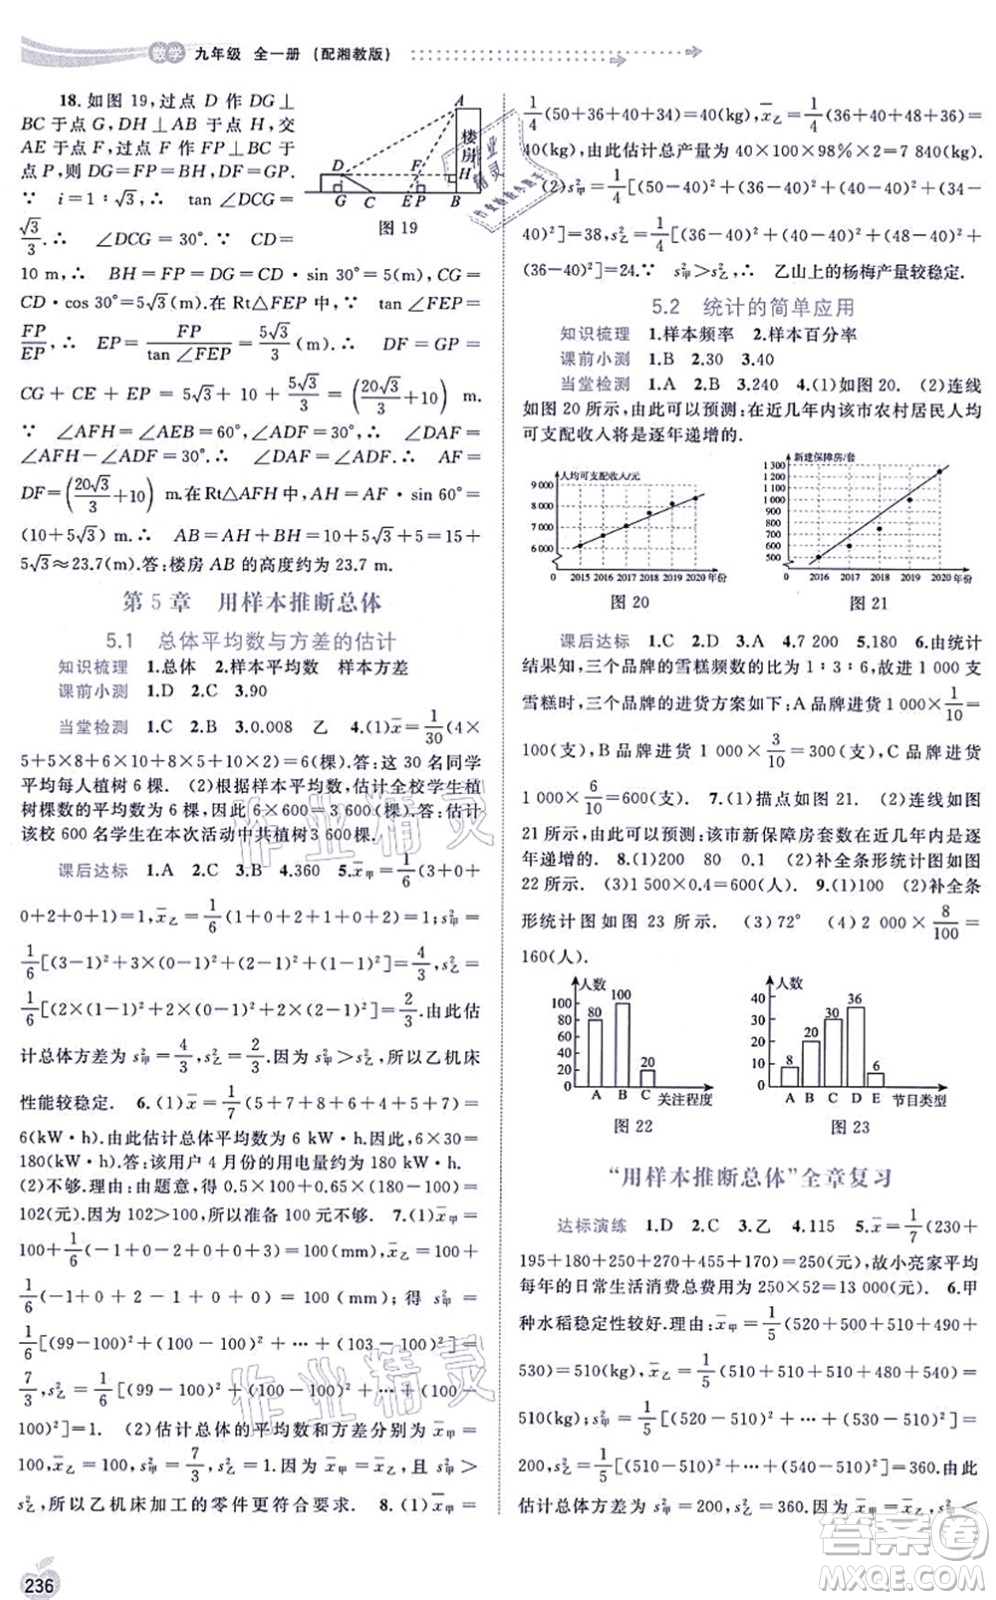 数学 九年级 全一册 (配湘教版)
18.如图 19,过点 D 作 DG⊥
BC 于点 G,DH⊥AB 于点 H,交
AE 于点 F,过点 F 作 FP⊥BC 于
点 P,则 DG=FP=BH,DF=GP.
∵ i=1∶√3,∴ tan ∠DCG=
√3/3.∴ ∠DCG=30°.∵ CD=
10 m,∴ BH=FP=DG=CD·sin 30°=5(m),CG=
CD·cos 30°=5√3(m).∴ 在Rt△FEP中,∵ tan∠FEP=
FP/EP,∴ EP=FP/tan∠FEP=5√3/3(m).∴ DF=GP=
CG+CE+EP=5√3+10+5√3/3=(20√3/3+10) m.
∵ ∠AFH=∠AEB=60°,∠ADF=30°.∴ ∠DAF=
∠AFH-∠ADF=30°.∴ ∠DAF=∠ADF.∴ AF=
DF=(20√3/3+10) m.在Rt△AFH中,AH=AF·sin 60°=
(10+5√3)m.∴ AB=AH+BH=10+5√3+5=15+
5√3≈23.7(m).答:楼房 AB 的高度约为 23.7 m.
A
楼房
D F H
G C E P B
图 19
第 5 章 用样本推断总体
5.1 总体平均数与方差的估计
知识梳理 1.总体 2.样本平均数 样本方差
课前小测 1.D 2.C 3.90
当堂检测 1.C 2.B 3.0.008 乙 4.(1)x̄=1/30(4×
5+5×8+6×10+8×5+10×2)=6(棵).答:这 30 名同学
平均每人植树 6 棵. (2)根据样本平均数,估计全校学生植
树棵数的平均数为 6 棵,因此 6×600=3 600(棵).答:估计
该校 600 名学生在本次活动中共植树3 600棵.
课后达标 1.A 2.C 3.B 4.360 5.x̄甲=1/6(3+0+
0+2+0+1)=1,x̄乙=1/6(2+1+0+2+1+0)=1;s²甲=
1/6[(3-1)²+(0-1)²+(0-1)²+…+(1-1)²]=4/3,s²乙=
1/6[(2-1)²+(1-1)²+(0-1)²+…+(0-1)²]=2/3.由此估
计总体方差为 s²甲=4/3,s²乙=2/3.因为 s²甲>s²乙,所以乙机床
性能较稳定. 6.(1)x̄=1/7(5+7+8+6+4+5+7)=
6(kW·h).由此估计总体平均数为 6(kW·h),6×30=
180(kW·h).答:该用户 4 月份的用电量约为 180 kW·h.
(2)不够.理由:由题意,得 0.5×100+(180-100)×0.65=
102(元).因为 102>100,所以准备 100 元不够. 7.(1)x̄甲=
100+1/6(-1+0+0+2-4+3)=100(mm),x̄乙=100+
1/6(-1+0+2-1+0+0)=100(mm);得 s²甲=
1/6[(99-100)²+(100-100)²+…+(103-100)²]=
7/3,s²乙=1/6[(99-100)²+(100-100)²+…+(100-
100)²]=1.由此估计总体的平均数和方差分别为 x̄甲=
100,x̄乙=100,s²甲=7/3,s²乙=1. (2)因为 x̄甲=x̄乙,且 s²甲>
s²乙,所以乙机床加工的零件更符合要求. 8.(1)x̄甲=
236
1/4(50+36+40+34)=40(kg),x̄乙=1/4(36+40+48+36)=
40(kg),由此估计总产量为 40×100×98%×2=7 840(kg).
(2)s²甲=1/4[(50-40)²+(36-40)²+(40-40)²+(34-
40)²]=38,s²乙=1/4[(36-40)²+(40-40)²+(48-40)²+
(36-40)²]=24.∵ s²甲>s²乙,∴ 乙山上的杨梅产量较稳定.
5.2 统计的简单应用
知识梳理 1.样本频率 2.样本百分率
课前小测 1.B 2.30 3.40
当堂检测 1.A 2.B 3.240 4.(1)如图 20. (2)连线
如图 20 所示,由此可以预测:在近几年内该市农村居民人均
可支配收入将是逐年递增的.
人均可支配收入/元
9 000
8 000
7 000
6 000
0 2015 2016 2017 2018 2019 2020 年份
图 20
新建保障房/套
1 300
1 200
1 100
1 000
900
800
700
600
500
0 2016 2017 2018 2019 2020 年份
图 21
课后达标 1.C 2.D 3.A 4.7 200 5.180 6.由统计
结果知,三个品牌的雪糕频数的比为 1∶3∶6.故进 1 000 支
雪糕时,三个品牌的进货方案如下:A 品牌进货 1 000×1/10=
100(支),B 品牌进货 1 000×3/10=300(支),C 品牌进货
1 000×6/10=600(支). 7.(1)描点如图 21. (2)连线如图
21 所示.由此可以预测:该市新保障房套数在近几年内是逐
年递增的. 8.(1)200 80 0.1 (2)补全条形统计图如图
22 所示. (3)1 500×0.4=600(人). 9.(1)100 (2)补全条
形统计图如图 23 所示. (3)72° (4)2 000×8/100=
160(人).
人数
100
80
60
40
20
0
80 100 20
A B C 关注程度
图 22
人数
40
30
20
10
0
8 20 30 36 6
A B C D E 节目类型
图 23
“用样本推断总体”全章复习
达标演练 1.D 2.C 3.乙 4.115 5.x̄=1/7(230+
195+180+250+270+455+170)=250(元),故小亮家平均
每年的日常生活消费总费用为 250×52=13 000(元). 6.甲
种水稻稳定性较好.理由:x̄甲=1/5(520+500+510+490+
530)=510(kg),x̄乙=1/5(510+510+510+480+540)=
510(kg);s²甲=1/5[(520-510)²+…+(530-510)²]=
200,s²乙=1/5[(510-510)²+…+(540-510)²]=360.由此
估计总体方差为 s²甲=200,s²乙=360.因为 x̄甲=x̄乙,s²甲<
作业精灵
作业精灵
作业精灵
答案圈
MXQE.COM